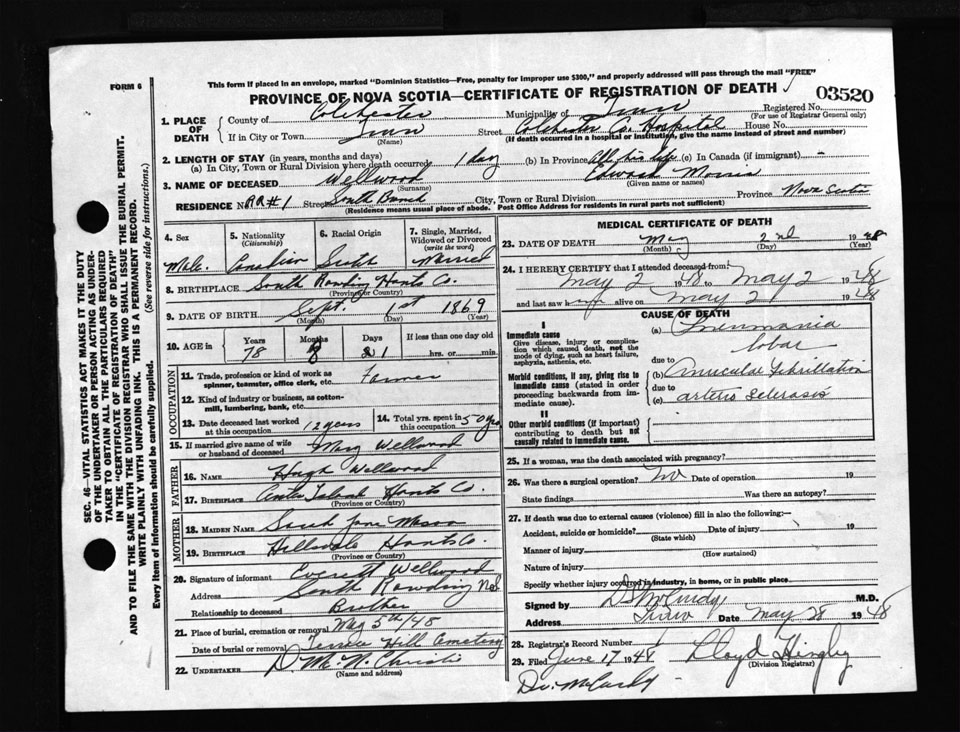 FORM 6
This form if placed in an envelope, marked "Dominion Statistics—Free, penalty for improper use $300," and properly addressed will pass through the mail "FREE"
PROVINCE OF NOVA SCOTIA—CERTIFICATE OF REGISTRATION OF DEATH
03520
1. PLACE OF DEATH
County of Colchester Municipality of Truro Registered No.
(For use of Registrar General only)
If in City or Town Truro Street Colchester Co. Hospital House No.
(Name) (If death occurred in a hospital or institution, give the name instead of street and number)
2. LENGTH OF STAY (in years, months and days)
(a) In City, Town or Rural Division where death occurred 1 day (b) In Province All his life (c) In Canada (if immigrant) —
3. NAME OF DECEASED Wellwood Edward Morris
(Surname) (Given name or names)
RESIDENCE No. RR#1 Street South Branch City, Town or Rural Division Province Nova Scotia
(Residence means usual place of abode. Post Office Address for residents in rural parts not sufficient)
SEC. 46—VITAL STATISTICS ACT MAKES IT THE DUTY
OF THE UNDERTAKER OR PERSON ACTING AS UNDER-
TAKER TO OBTAIN ALL THE PARTICULARS REQUIRED
IN THE "CERTIFICATE OF REGISTRATION OF DEATH"
AND TO FILE THE SAME WITH THE DIVISION REGISTRAR WHO SHALL ISSUE THE BURIAL PERMIT.
WRITE PLAINLY WITH UNFADING INK. THIS IS A PERMANENT RECORD.
Every item of Information should be carefully supplied. (See reverse side for instructions.)
4. Sex
Male
5. Nationality
(Citizenship)
Canadian
6. Racial Origin
Scotch
7. Single, Married,
Widowed or Divorced
(write the word)
Married
8. BIRTHPLACE South Rawdon Hants Co.
(Province or Country)
9. DATE OF BIRTH Sept. 1st 1869
(Month) (Day) (Year)
10. AGE in
Years Months Days If less than one day old
78 8 1 hrs. or min.
OCCUPATION
11. Trade, profession or kind of work as
spinner, teamster, office clerk, etc. Farmer
12. Kind of industry or business, as cotton-
mill, lumbering, bank, etc.
13. Date deceased last worked
at this occupation 12 years
14. Total yrs. spent in
this occupation 50 yrs
15. If married give name of wife
or husband of deceased Mary Wellwood
FATHER
16. Name Hugh Wellwood
17. Birthplace Hants Co.
(Province or Country)
MOTHER
18. Maiden Name Sarah Jane Mason
19. Birthplace Hillsvale Hants Co.
(Province or Country)
20. Signature of informant Everett Wellwood
Address South Rawdon N.S
Relationship to deceased Brother
21. Place of burial, cremation or removal May 5th/48
Date of burial or removal Terrace Hill Cemetery
22. UNDERTAKER D McN. Christie
(Name and address)
MEDICAL CERTIFICATE OF DEATH
23. DATE OF DEATH May 2nd 1948
(Month) (Day) (Year)
24. I HEREBY CERTIFY that I attended deceased from
May 2 1948 to May 2 1948
and last saw him alive on May 2 1948
CAUSE OF DEATH
I
Immediate cause
Give disease, injury or complica-
tion which caused death, not the
mode of dying, such as heart failure,
asphyxia, asthenia, etc.
(a) Pneumonia
lobar
due to
Morbid conditions, if any, giving rise to
immediate cause (stated in order
proceeding backwards from
immediate cause).
(b) Auricular Fibrillation
due to
(c) arterio Sclerosis
II
Other morbid conditions (if important)
contributing to death but not
causally related to immediate cause.
25. If a woman, was the death associated with pregnancy?
26. Was there a surgical operation? No Date of operation 19
State findings Was there an autopsy?
27. If death was due to external causes (violence) fill in also the following:—
Accident, suicide or homicide? Date of injury 19
(State which)
Manner of injury
(How sustained)
Nature of injury
Specify whether injury occurred in industry, in home, or in public place
Signed by D S McCurdy M.D.
Address Truro Date May 28 1948
28. Registrar's Record Number 1
29. Filed June 17 1948 Lloyd Hingley
(Division Registrar)
Dr. McCurdy